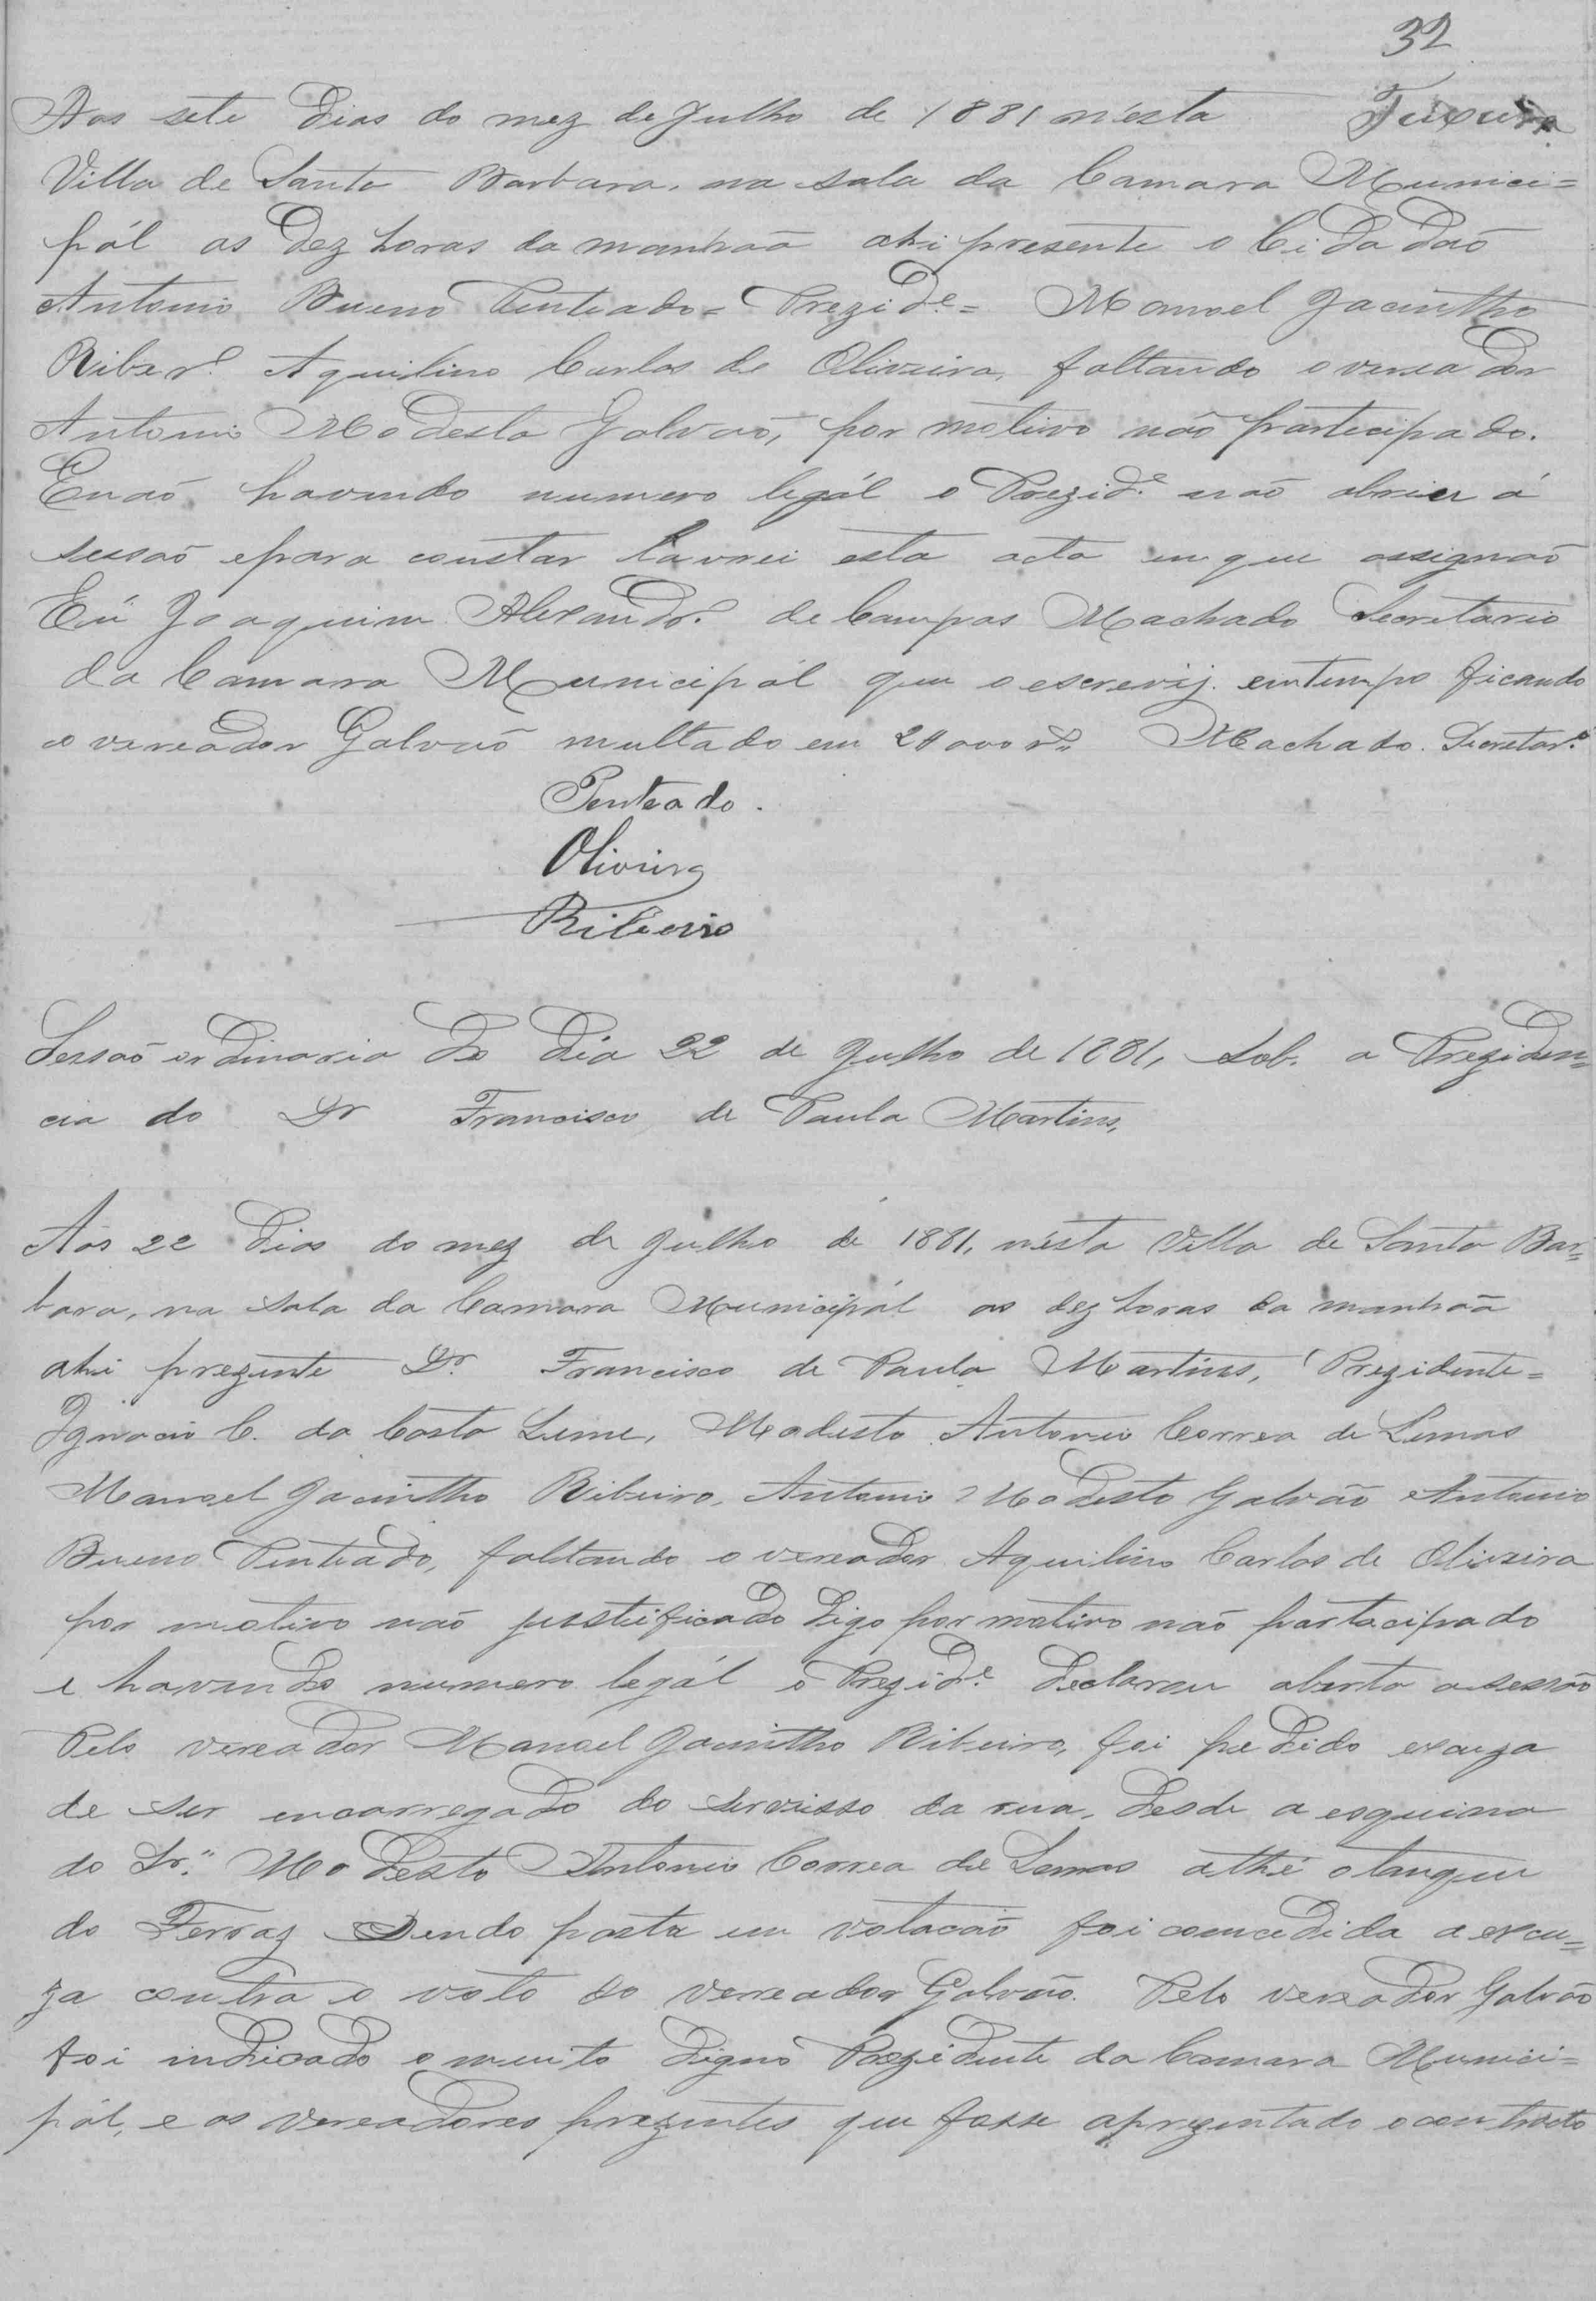 32
Teixeira
Aos sete dias do mez de Julho de 1881 n'esta
Villa de Santa Barbara, na sala da Camara Munici=
pál as dez horas da manhaã ahi presente o Cidadaõ
Antonio Bueno Penteado= Prezid.e= Manoel Jacintho
Ribeir.o Aquilino Carlos de Oliveira, faltando o vereador
Antonio Modesto Galvaõ, por motivo naõ participado.
E naõ havendo numero legál o Prezid.e naõ abriu á
sessaõ e para constar lavrei esta acta em que assignaõ
Eu Joaquim Alexandr.e de Campos Machado Secretario
da Camara Municipál que o escrevij. em tempo ficando
o vereador Galvaõ multado em 20000 rs. Machado. Secretar.o
Penteado.
Oliveira
Ribeiro
Sessaõ ordinaria do dia 22 de Julho de 1881, sob. a Preziden=
cia do Dr Francisco de Paula Martins,
Aos 22 dias do mez de Julho de 1881, n'esta Villa de Santa Bar=
bara, na sala da Camara Municipál as dez horas da manhaã
ahi prezente Dr. Francisco de Paula Martins, Prezidente=
Ignacio C. da Costa Leme, Modesto Antonio Correa de Lemos
Manoel Jacintho Ribeiro, Antonio Modesto Galvaõ e Antonio
Bueno Penteado, faltando o vereador Aquilino Carlos de Oliveira
por motivo naõ justificado digo por motivo naõ participado
e havendo numero legál o Prezid.e declarou aberta a sessaõ
Pelo vereador Manoel Jacintho Ribeiro, foi pedido escuza
de ser encarregado do servisso da rua, desde a esquina
do Sr." Modesto Antonio Correa de Lemos athé o tanque
do Ferraz sendo posta em votacaõ foi comcedida a excu=
za contra o voto do vereador Galvaõ. Pelo vereador Galvaõ
foi indicado o muito digno Prezidente da Camara Munici=
pál, e os vereadores prezentes que fosse aprezentado o contracto